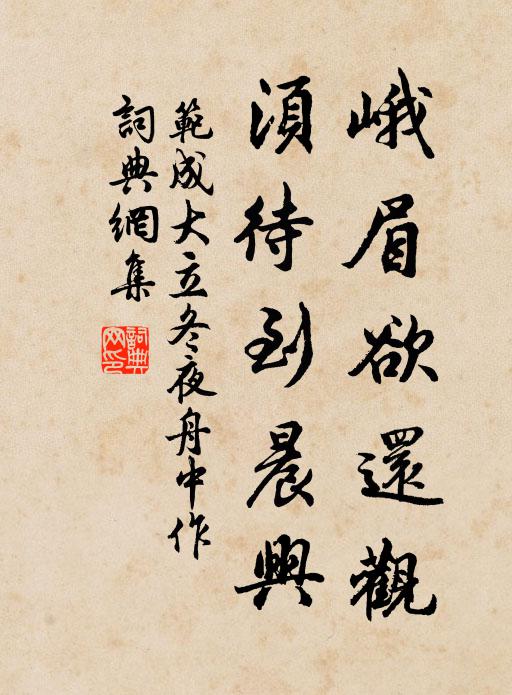 峨眉欲還觀
須待到晨興
範成大立冬夜舟中作
詞典網集
詞典網印